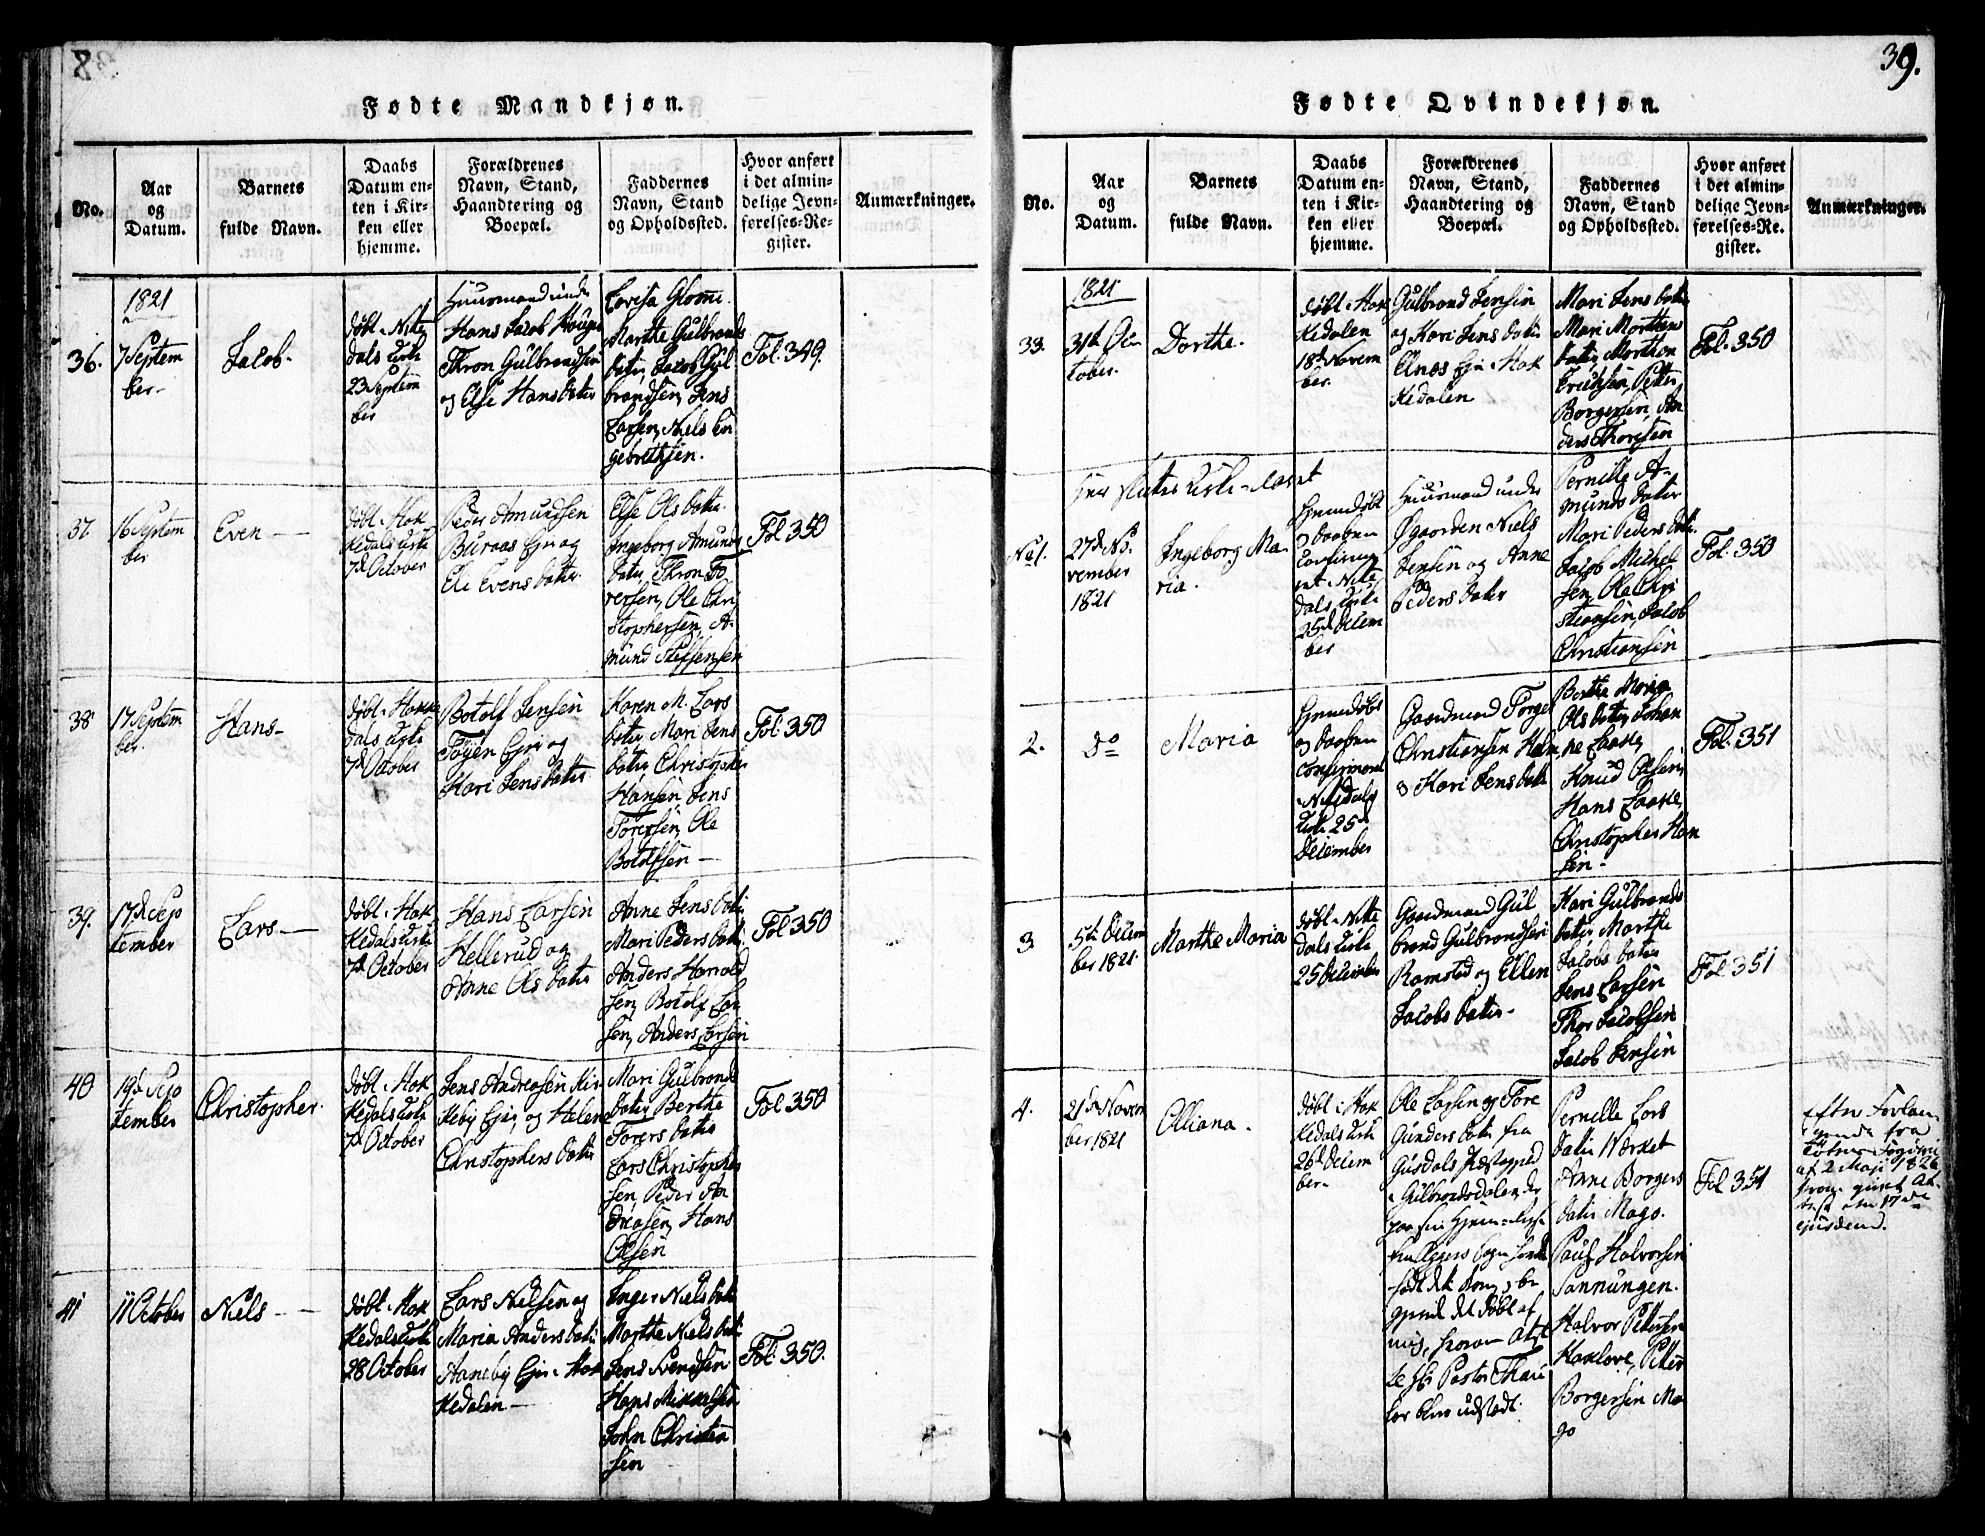 Fødte Mandkjøn.
No.
Aar
og
Datum.
Barnets
fulde Navn.
Daabs
Datum en-
ten i Kir-
ken eller
hjemme.
Forældrenes
Navn, Stand,
Haandtering og
Boepæl.
Faddernes
Navn, Stand
og Opholdssted.
Hvor anført
i det almin-
delige Jevn-
førelses-Re-
gister.
Anmærkninger.
1821
36.
7 Septem
ber-
Jacob.
døbt i Nitte
dals Kirke
23 Septem
ber
Huusmand under
Hans Jacob
Thron Gulbrandsen
og Else Hansdatter
Lovisa
Marthe Gulbrands
datter, Jacob Gul
brandsen, Jens
Larsen, Niels En
gebrethsen.
Fol. 349.
37
16 Septem
ber
Even
døbt i Hak
kedals Kirke
7d October
Peder Amundsen
Buraas Eier og
Ele Evensdatter
Else Olsdatter
Ingeborg Amunds
datter, Thron To
rersen, Ole Chri
stophersen, A-
mund Steffensen
Fol 350
38
17 Septem
ber.
Hans
døbt i Hakke
dals Kirke
7d October
Botolf Jensen
Tøyen Eier og
Kari Jensdatter
Karen M. Lars
datter Mari Jens
datter Christopher
Hansen Jens
Toresen, Ole
Botolfsen
Fol 350
39.
17d Sep
tember
Lars
døbt i Hak
kedals Kirke
7d October
Hans Larsen
Hellerud og
Anne Olsdatter
Anne Jensdatter
Mari Pedersdatter
Anders Harrald
sen, Botolf Lar
sen, Anders Larsen
Fol 350
40
19d Sep
tember
Christopher.
døbt i Hak
kedals Kirke
7d October
Jens Andreasen Kir
keby Eier, og Helene
Christophersdatter
Mari Gulbrands
datter Berthe
Torersdatter
Lars Christopher
sen, Peder An
dreasen, Hans
Olsen
Fol 350
41
11 October
Niels
døbt i Hak
kedals Kirke
28 October
Lars Nielsen og
Maria Andersdatter
Haneby Eier i Hak
kedalen
Inger Nielsdatter
Marthe Nielsdatter
Jens Svendsen
Hans Mikkelsen
John Christian
sen
Fol. 350.
39.
Fødte Qvindekjøn.
No.
Aar
og
Datum.
Barnets
fulde Navn.
Daabs
Datum en-
ten i Kir-
ken eller
hjemme.
Forældrenes
Navn, Stand,
Haandtering og
Boepæl.
Faddernes
Navn, Stand
og Opholdssted.
Hvor anført
i det almin-
delige Jevn-
førelses-Re-
gister.
Anmærkninger.
1821
33.
31te Oc
tober.
Dorthe.
døbt i Hak
kedalen
18d Novem
ber.
Gulbrand Jensen
og Kari Jensdatter
Elnes Eier i Hak
kedalen
Mari Jensdatter
Mari Morthens
datter, Morthen
Erichsen, Petter
Borgersen, An
ders Thoresen
Fol. 350
her sluttes Kirke-aaret
No 1.
27d No.
vember
1821
Ingeborg Ma-
ria.
hjemmedøbt
og Daaben
i Nitte
dals Kirke
25d Decem
ber
Huusmand under
Øgaarden Niels
Jensen og Anne
Pedersdatter
Pernille A-
mundsdatter
Mari Pedersdatter
Jacob Michel
sen, Ole Chri
stiansen, Jacob
Christiansen
Fol. 350
2.
do
Maria
hjemmedøbt
og Daaben
confirmeret
i Nitedals
Kirke 25d
December
Gaardmand Torgel
Christiansen Holm
og Kari Jensdatter
Berthe Maria
Olsdatter, Johan
ne Laake,
Knud Olsen,
Hans Laake,
Christopher Han
sen-
Fol. 351
3
5te Decem
ber 1821.
Marthe Maria
døbt i Nitte
dals Kirke
25 December
Gaardmand Gul
brand Gulbrandsen
Ramstad og Ellen
Jacobsdatter-
Kari Gulbrands
datter Marthe
Jacobsdatter
Jens Larsen
Thor Jacobsen
Jacob Jensen
Fol. 351
4.
21de Novem
ber 1821
Olliana.
døbt i Hak
kedals Kirke
26d Decem
ber-
Ole Larsen og Tore
Gundersdatter fra
Gusdals Præstegjeld
i Gulbrandsdalen, der
paa sin Hjem-reise
fra Aggers Sogn havde
født dette Barn, og be
gjerede det døbt af
mig, hvorom Atte
st Hr Pastor
er blev udstedt.
Pernille Lars
datter Værket
Anne Borgers
datter Mago.
Poul Halvorsen
Sannungen.
Halvor Pettersen
Kaklove, Petter
Borgersen Ma
go
Fol 351
efter Forlan-
gende fra
af 2 Maji 1826
givet At-
test den 17de
ejusdem.